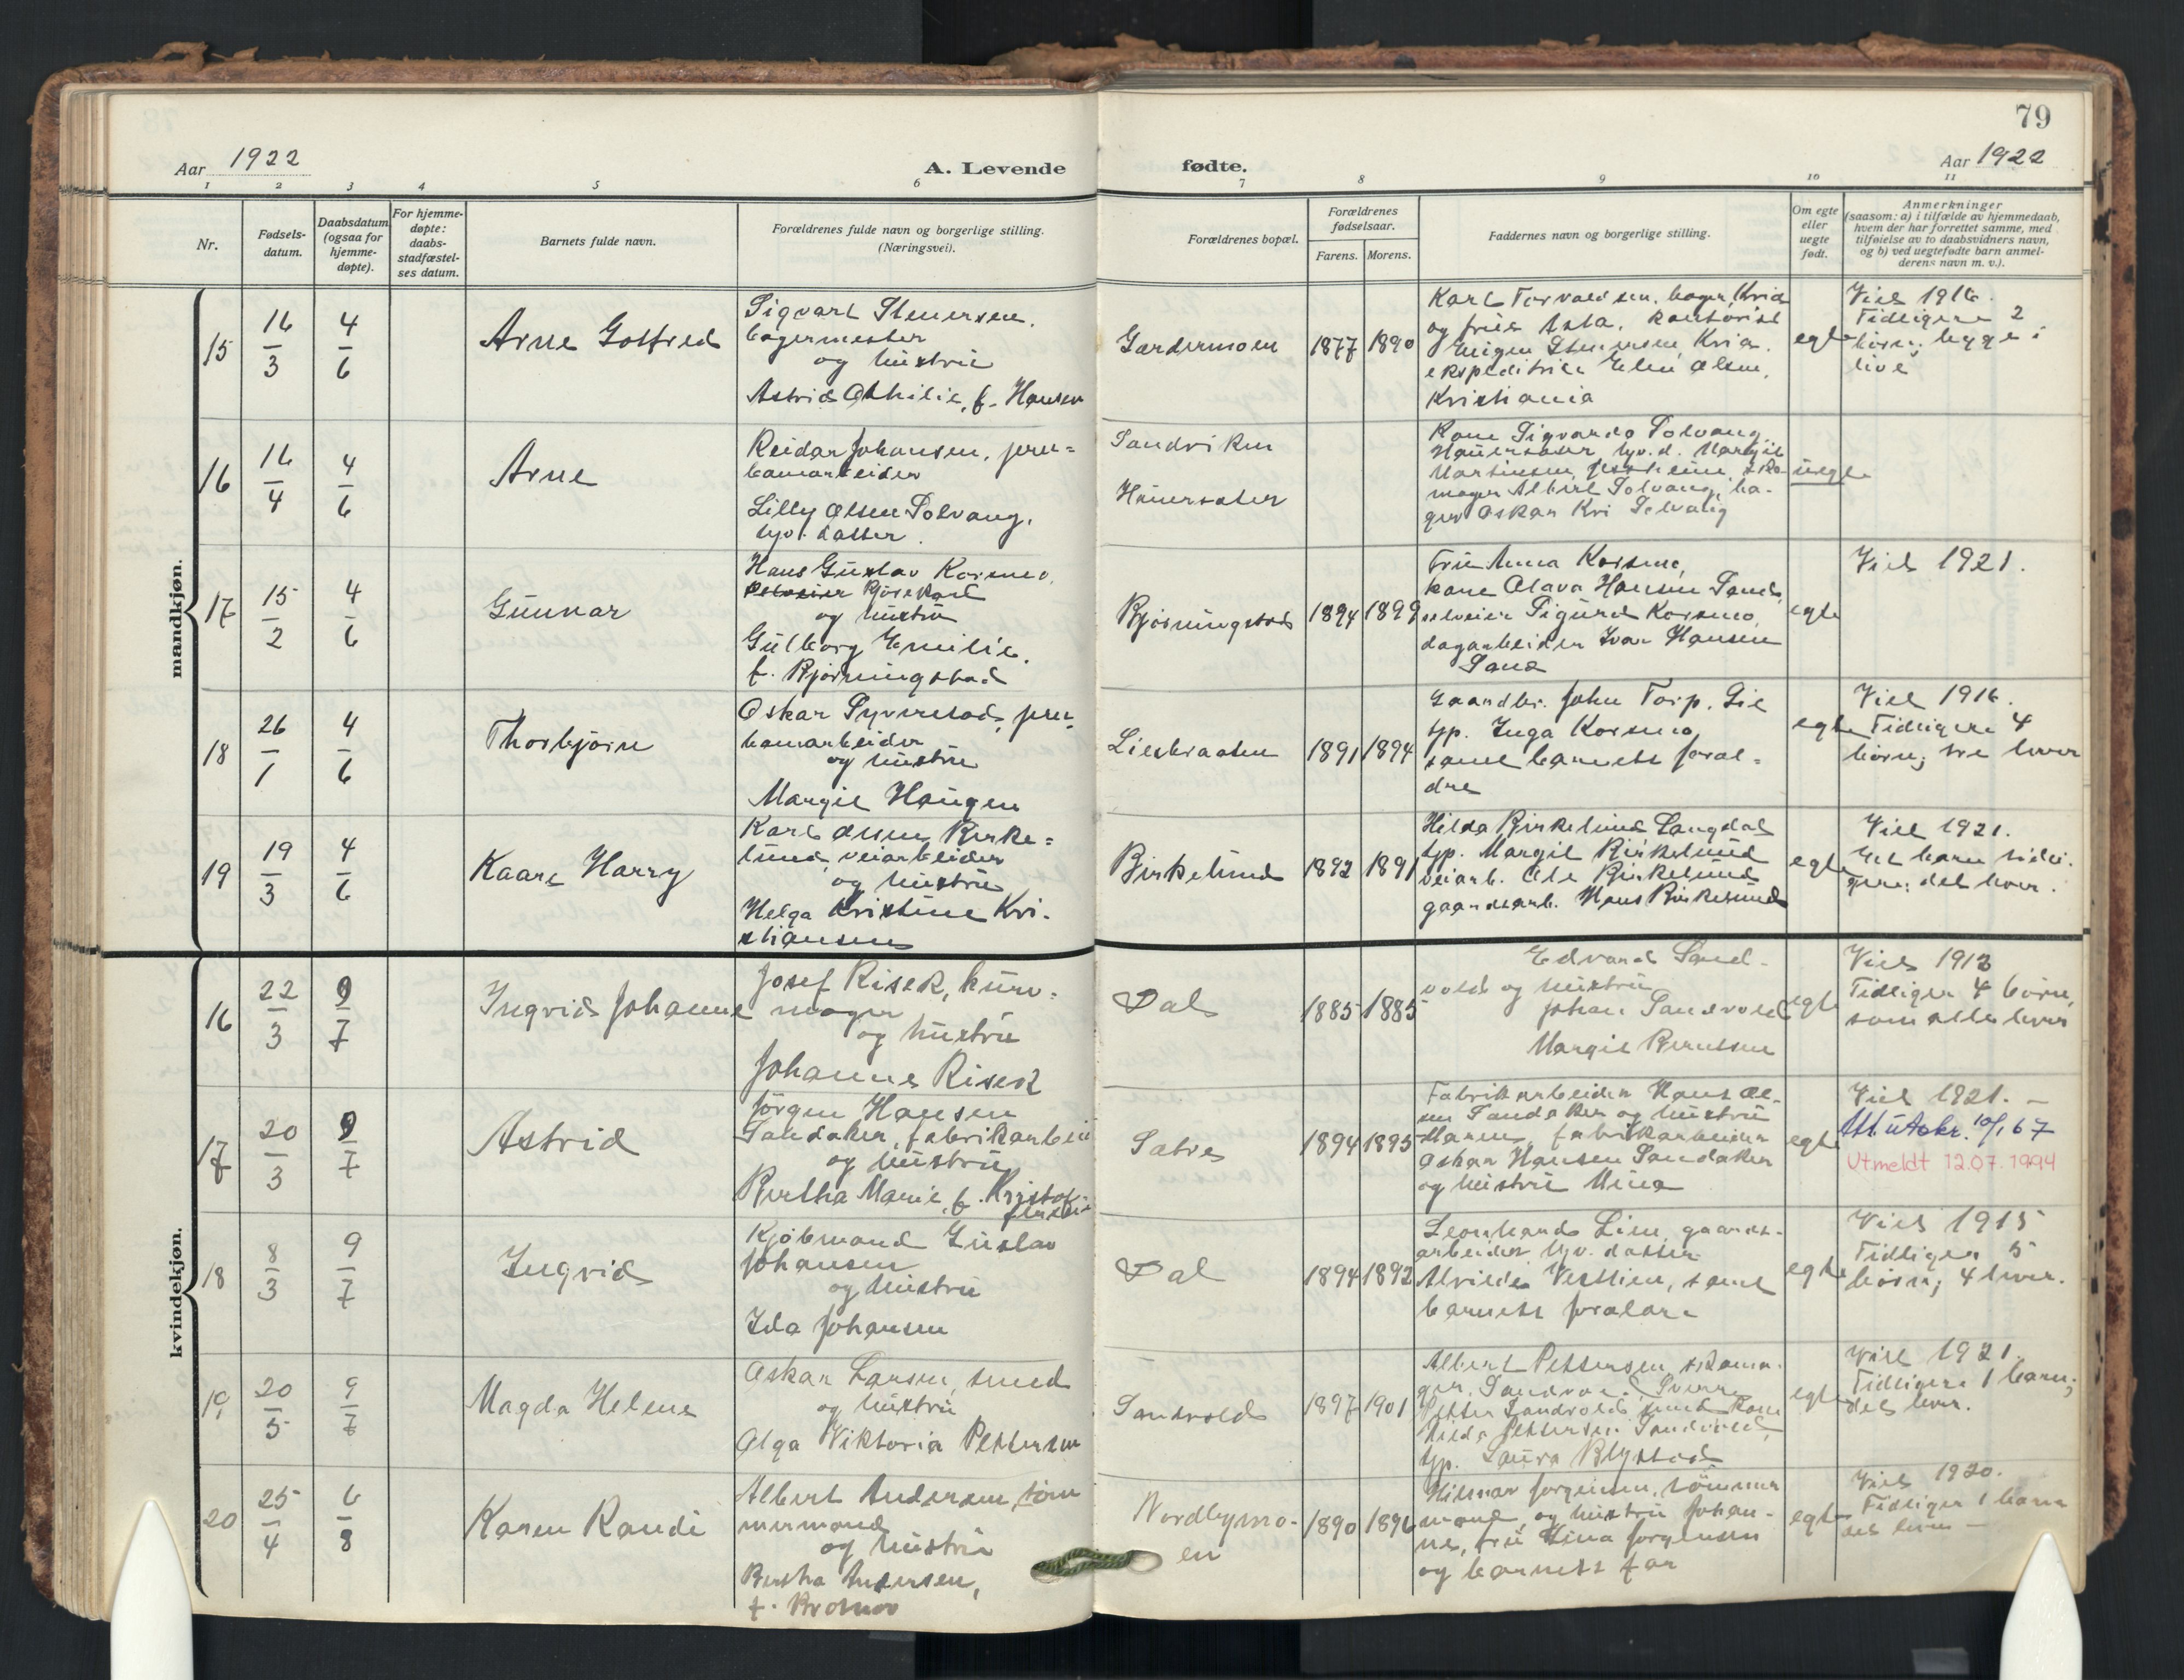 79
Aar 1922
A. Levende
fødte.
Aar 1922
1 2 3 4 5 6 7 8 9 10 11
Nr.
Fødsels-
datum.
Daabsdatum
(ogsaa for
hjemme-
døpte).
For hjemme-
døpte:
daabs-
stadfæstel-
ses datum.
Barnets fulde navn.
Forældrenes fulde navn og borgerlige stilling.
(Næringsvei).
Forældrenes bopæl.
Forældrenes
fødselsaar.
Farens. Morens.
Faddernes navn og borgerlige stilling.
Om egte
eller
uegte
født.
Anmerkninger
(saasom: a) i tilfælde av hjemmedaab,
hvem der har forrettet samme, med
tilføielse av to daabsvidners navn,
og b) ved uegtefødte barn anmel-
derens navn m. v.).
mandkjøn.
15
16/3
4/6
Arne Gotfred
Sigvart Stenersen,
bagermester
og hustru
Astrid Othilie, f. Hansen
Gardermoen
1877 1890
Karl Torvaldsen, bager, Kria
og frue Asta, kontorist
Stenersen, Kria.
ekspeditrice Olsen,
Kristiania
egte
Viet 1916.
Tidligere 2
børn; begge i
live
16
16/4
4/6
Arne
Reidar Johansen, jern-
banearbeider
Lilly Olsen Solvang,
tyv. datter.
Sandviken
Hauersæter
Kone Sigvarda Solvang
Hauersæter, tyv. d. Margit
Martinsen, Jessheim, sko-
mager Albert Solvang, ba-
ger Oskar Solvang
uegte
17
15/2
4/6
Gunnar
Hans Gustav Korsmo,
og hustru
Gulborg Emilie,
f. Bjørningstad
Bjørningstad
1894 1899
Fru Anna Korsmo,
kone Olava Hansen Sand,
selveier Sigurd Korsmo,
dagarbeider Ivar Hansen
Sand
egte
Viet 1921.
18
26/1
4/6
Thorbjørn
Oskar Syverstad, jern-
banearbeider
og hustru
Margit Haugen
Lierbraaten
1891 1894
Gaardbr. John Torp, Lie
tp. Inga Korsmo
samt barnets foræl-
dre
egte
Viet 1916.
Tidligere 4
børn; tre lever
19
19/3
4/6
Kaare Harry
Karl Olsen Birke-
lund, veiarbeider
og hustru
Helga Kristine Kri-
stiansen
Birkelund
1892 1891
Hilda Birkelund Langdal
tp. Margit Birkelund
veiarb. Ole Birkelund
gaardsarb. Hans Birkelund
egte
Viet 1921.
Et barn tidli-
gere; det lever.
kvindekjøn.
16
22/3
9/7
Ingrid Johanne
Josef Risek, kurv-
mager
og hustru
Johanne Risek
Dal
1885 1885
Edvard Sand-
vold og hustru
Johan Sandvold
Margit Berntsen
egte
Viet 1913
Tidliger 4 børn,
som alle lever
17
20/3
9/7
Astrid
Jørgen Hansen
Sandaker, fabrikarbeid
og hustru
Bertha Marie, f. Kristof-
fersen
Satre
1894 1895
Fabrikarbeider Hans Ol-
sen Sandaker og hustru
Maren, fabrikarbeider
Oskar Hansen Sandaker
og hustru Mina
egte
Viet 1921. -
Att utskr. 10/1 67
Utmeldt 12.07.1994
18
8/3
9/7
Ingrid
Kjøbmand Gustav
Johansen
og hustru
Ida Johansen
Dal
1894 1892
Leonhard Lien, gaards-
arbeider, tyv. datter
Alvilda Vestlien, samt
barnets forældre
egte
Viet 1915
Tidliger 5
børn; 4 lever.
19
20/5
9/7
Magda Helene
Oskar Larsen, smed
og hustru
Olga Viktoria Pettersen
Sandvold
1897 1901
Albert Pettersen, skoma-
ger, Sandvold, Sverre
Petter Sandvold smed kone
Hilda Pettersen Sandvold,
tp. Laura Blystad
egte
Viet 1921.
Tidligere 1 barn;
det lever.
20
25/4
6/8
Karen Randi
Albert Andersen, tøm-
mermand
og hustru
Bertha Andersen,
f.
Nordbymo-
en
1890 1896
Hilmar Jørgensen, tømmer
mand og hustru Johan-
ne, fru Lina Jørgensen
og barnets far
egte
Viet 1920.
Tidliger 1 barn
det lever -